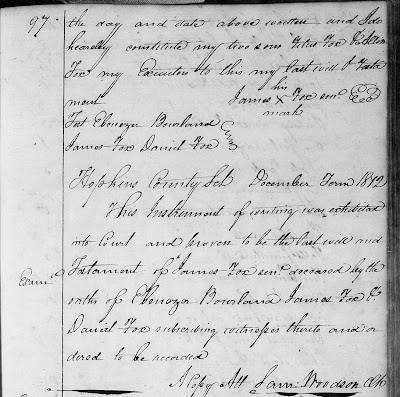 97.
the day and date above written and I do
hereby constitute my two sons Titus Fox &
Fox my Executors to this my last will & Testa
ment
his
James X Fox senr. Seal
mark
Test Ebenezer Bourland
James Fox Daniel Fox
Hopkins County Sct December Term 1812
This Instrument of writing was exhibited
into Court and proven to be the last will and
Testament of James Fox senr. deceased by the
Exam
oaths of Ebenezer Bourland James Fox &
Daniel Fox subscribing witnesses thereto and or
dered to be recorded
A Copy Att Sam: Woodson Clk